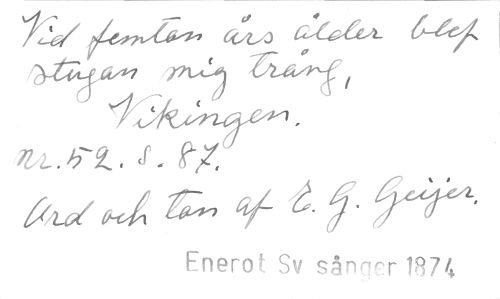 Vid femton års ålder blef
stugan mig trång,
Vikingen.
nr. 52. s. 87.
Ord och ton af E. G. Geijer.
Enerot Sv sånger 1874